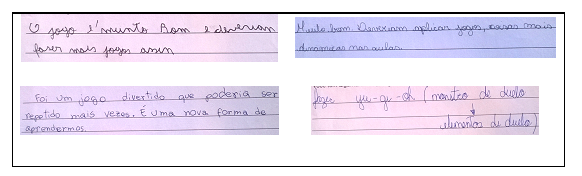 O jogo é munto Bom e deveriam
fazer mais jogos assim
Muito bom. Deveriam aplicar jogos, coisas mais
dinâmicas nas aulas.
Foi um jogo divertido que poderia ser
repetido mais vezes. É uma nova forma de
aprendermos.
yu-gi-oh (monstro de duelo
elementos de duelo)